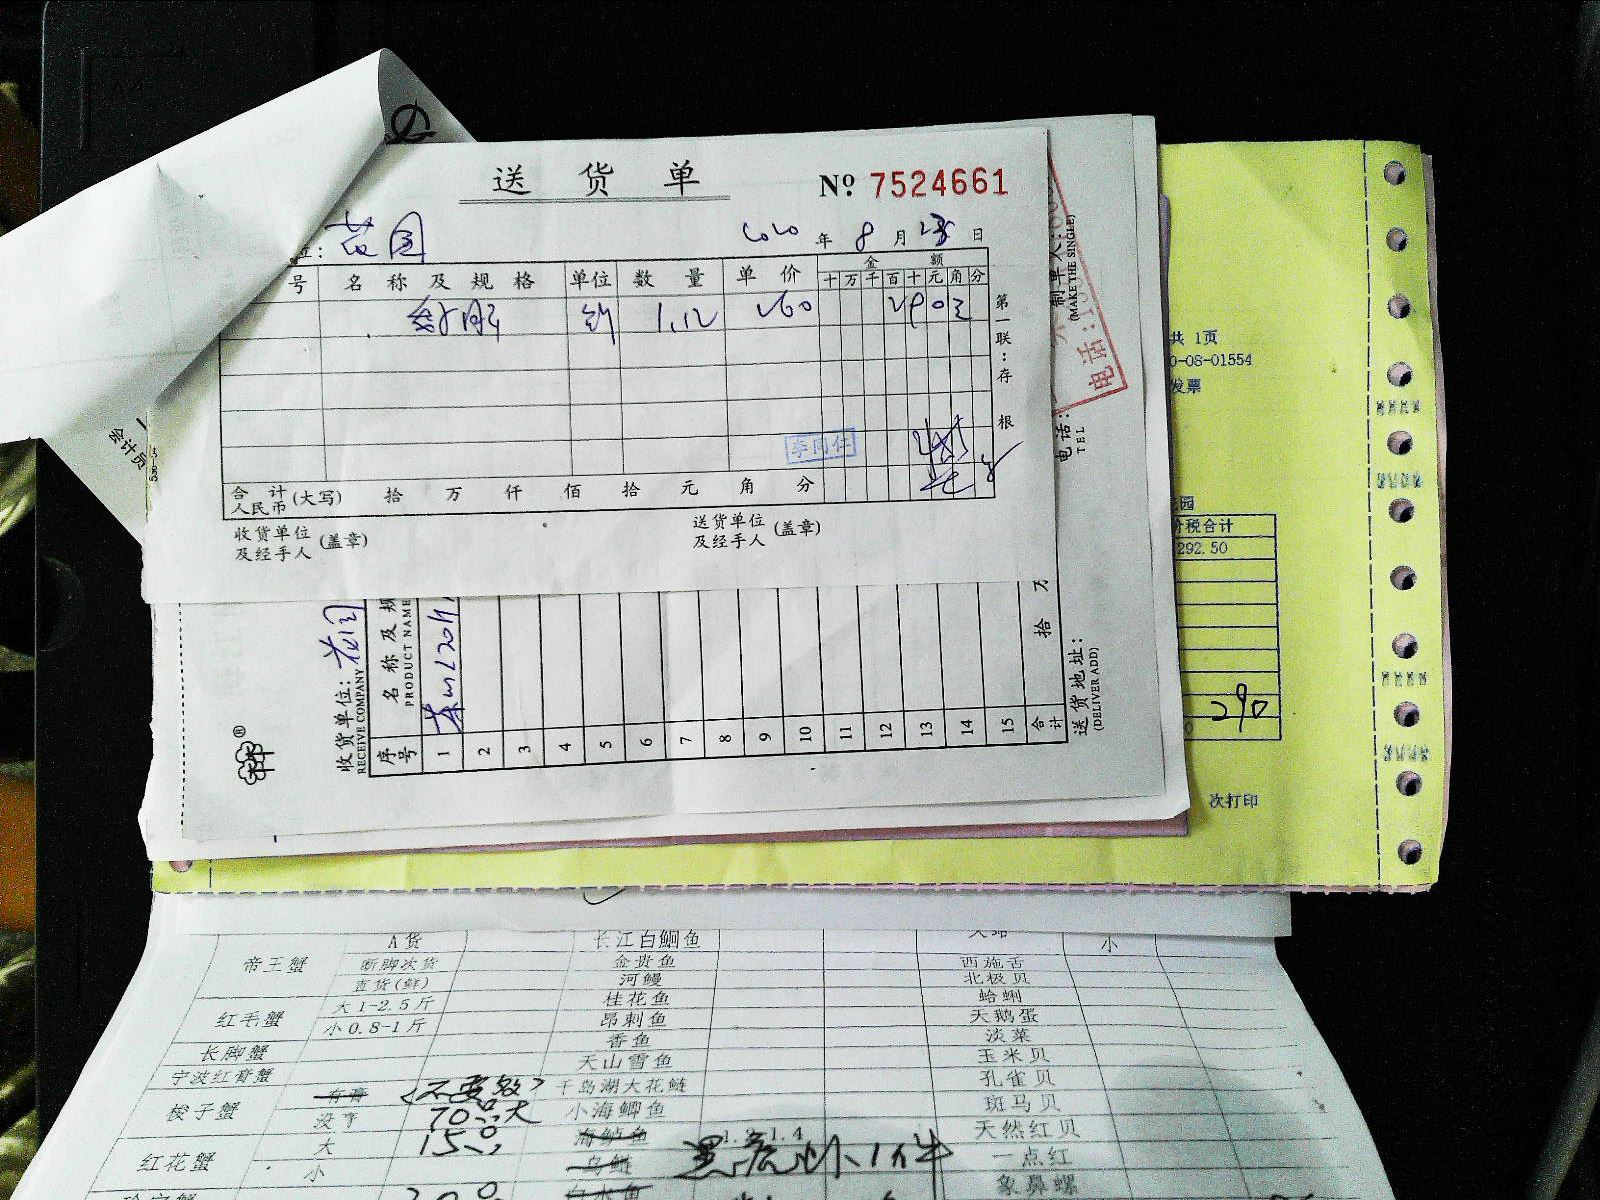 送 货 单
Nº 7524661
位: 花园
年 8 月 日
号 名称及规格 单位 数量 单价 金额
十 万 千 百 十 元 角 分
1.12 260
第一联:存根
李同仁
合计人民币(大写) 拾 万 仟 佰 拾 元 角 分
收货单位及经手人(盖章)
送货单位及经手人(盖章)
会计员
制单人:
(MAKE THE SINGLE)
电话:
电话:
TEL
共 1页
0-08-01554
发票
园
价税合计
292.50
290
次打印
收货单位: 花园
RECEIVE COMPANY
序号
名称及规
PRODUCT NAME
1
2
3
4
5
6
7
8
9
10
11
12
13
14
15
合计
拾 万
送货地址:
(DELIVER ADD)
A货 长江白鮰鱼 小
帝王蟹 断脚次货 金贵鱼 西施舌
直货(鲜) 河鳗 北极贝
红毛蟹 大1-2.5斤 桂花鱼 蛤蜊
小0.8-1斤 昂刺鱼 天鹅蛋
长脚蟹 香鱼 淡菜
宁波红膏蟹 天山雪鱼 玉米贝
梭子蟹 有膏 <不要数> 千岛湖大花鲢 孔雀贝
没亨 70 大 小海鲫鱼 斑马贝
红花蟹 大 15 海鲈鱼 1.2-1.4 天然红贝
小 乌鲢 黑虎虾1件 一点红
白水鱼 象鼻螺